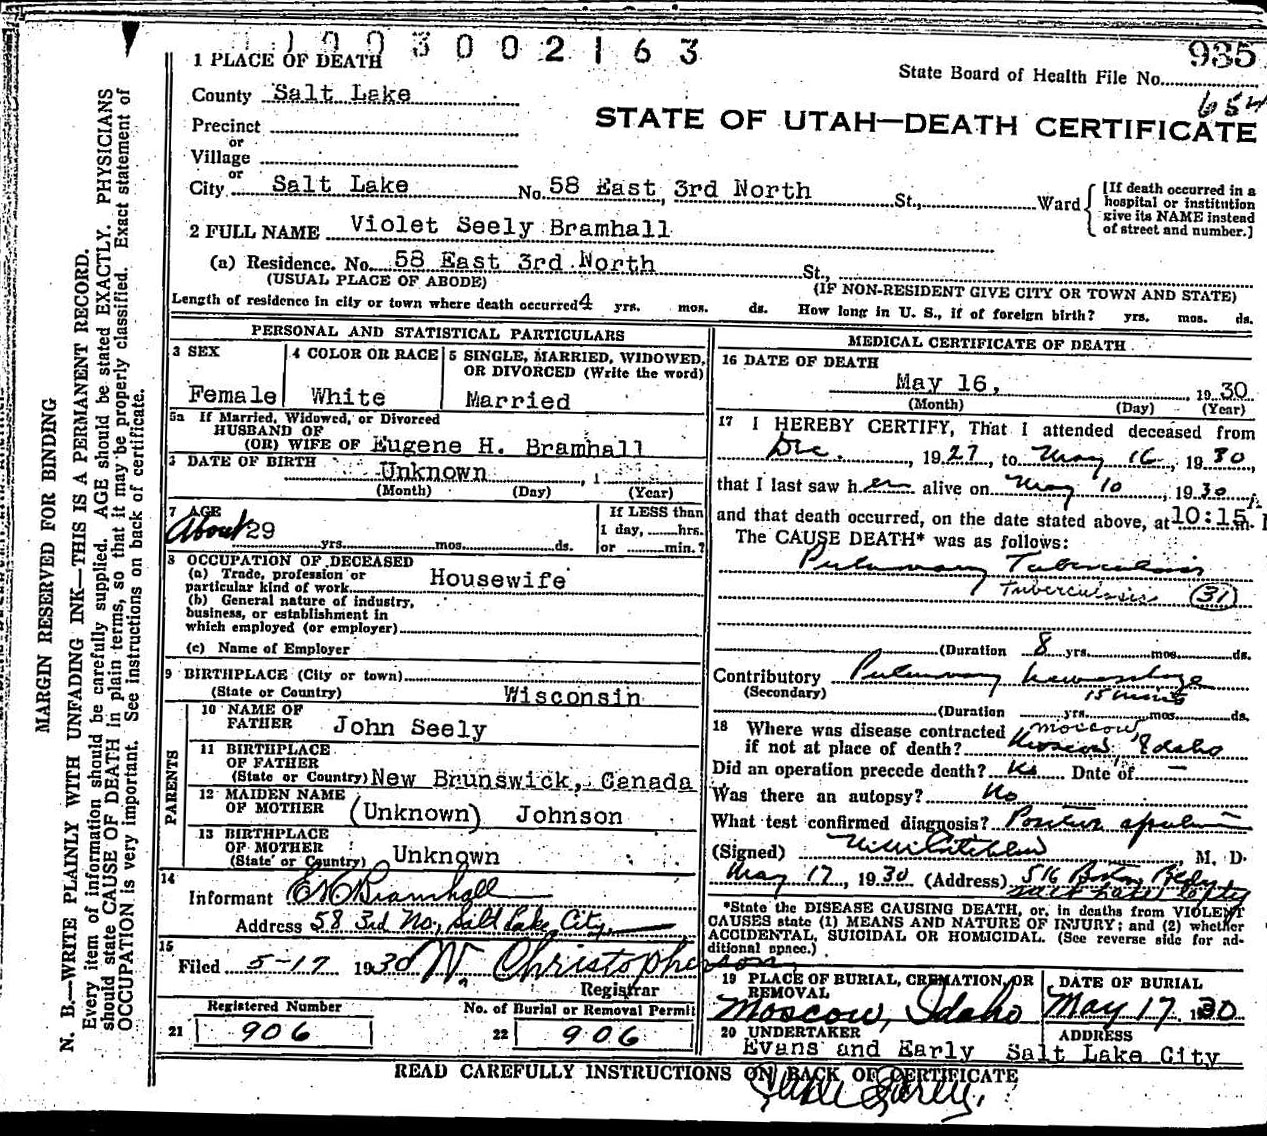 1003002163
935
State Board of Health File No.
654
1 PLACE OF DEATH
STATE OF UTAH—DEATH CERTIFICATE
County Salt Lake
Precinct
or
Village
or
City Salt Lake No. 58 East 3rd North St., Ward
[If death occurred in a hospital or institution give its NAME instead of street and number.]
2 FULL NAME Violet Seely Bramhall
(a) Residence. No. 58 East 3rd North St.,
(USUAL PLACE OF ABODE) (IF NON-RESIDENT GIVE CITY OR TOWN AND STATE)
Length of residence in city or town where death occurred 4 yrs. mos. ds. How long in U. S., if of foreign birth? yrs. mos. ds.
PERSONAL AND STATISTICAL PARTICULARS
3 SEX
Female
4 COLOR OR RACE
White
5 SINGLE, MARRIED, WIDOWED, OR DIVORCED (Write the word)
Married
5a If Married, Widowed, or Divorced
HUSBAND OF
(OR) WIFE OF Eugene H. Bramhall
DATE OF BIRTH Unknown , 1
(Month) (Day) (Year)
7 AGE
About 29 yrs. mos. ds.
If LESS than
1 day, hrs.
or min.?
8 OCCUPATION OF DECEASED
(a) Trade, profession or
particular kind of work Housewife
(b) General nature of industry,
business, or establishment in
which employed (or employer)
(c) Name of Employer
9 BIRTHPLACE (City or town)
(State or Country) Wisconsin
PARENTS
10 NAME OF
FATHER John Seely
11 BIRTHPLACE
OF FATHER
(State or Country) New Brunswick, Canada
12 MAIDEN NAME
OF MOTHER (Unknown) Johnson
13 BIRTHPLACE
OF MOTHER
(State or Country) Unknown
14
Informant E H Bramhall
Address 58 3rd No, Salt Lake City
15
Filed 5-17 1930 W. Christopherson
Registrar
Registered Number
21 906
No. of Burial or Removal Permit
22 906
MEDICAL CERTIFICATE OF DEATH
16 DATE OF DEATH
May 16, 1930
(Month) (Day) (Year)
17 I HEREBY CERTIFY, That I attended deceased from
Dec. , 1927, to May 16, 1930,
that I last saw her alive on May 10, 1930,
and that death occurred, on the date stated above, at 10:15 m.
The CAUSE DEATH* was as follows:
Pulmonary Tuberculosis
Tuberculosis (31)
(Duration 8 yrs. mos. ds.
Contributory Pulmonary hemorrhage
(Secondary) 15 minutes
(Duration yrs. mos. ds.
18 Where was disease contracted Moscow,
if not at place of death? Moscow, Idaho
Did an operation precede death? No Date of —
Was there an autopsy? No
What test confirmed diagnosis? Positive sputum
(Signed) , M. D.
May 17, 1930 (Address) 516 Boston Bldg
Salt Lake City
*State the DISEASE CAUSING DEATH, or, in deaths from VIOLENT
CAUSES state (1) MEANS AND NATURE OF INJURY; and (2) whether
ACCIDENTAL, SUICIDAL OR HOMICIDAL. (See reverse side for ad-
ditional space.)
19 PLACE OF BURIAL, CREMATION, OR
REMOVAL
Moscow, Idaho
DATE OF BURIAL
May 17 1930
20 UNDERTAKER
Evans and Early
ADDRESS
Salt Lake City
READ CAREFULLY INSTRUCTIONS ON BACK OF CERTIFICATE
MARGIN RESERVED FOR BINDING
N. B.—WRITE PLAINLY WITH UNFADING INK—THIS IS A PERMANENT RECORD.
Every item of information should be carefully supplied. AGE should be stated EXACTLY. PHYSICIANS
should state CAUSE OF DEATH in plain terms, so that it may be properly classified. Exact statement of
OCCUPATION is very important. See instructions on back of certificate.